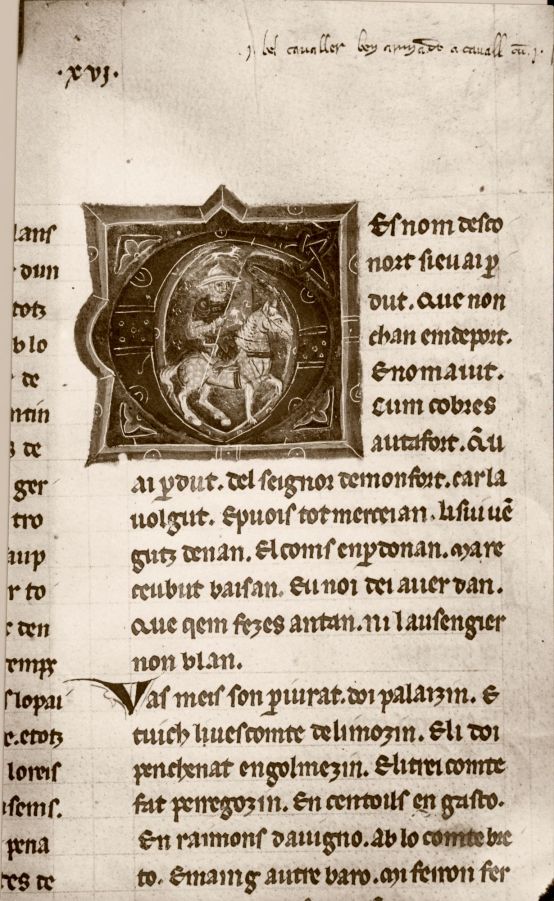 .i. bel cavaller ben a cavall
.xvi.
lans
dun
totz
blo
te
ntin
te
ger
tro
aup
r to
ten
tempr
slopai
e.etotz
loreis
seins.
pena
tes te
Es nom desco
nort sieu ai ꝑ
dut. Que non
chan em deport.
E nom aiut.
Cum cobres
autafort. Qu
ai ꝑdut. del seignor demonfort. car la
uolgut. E puois tot merceian. li sui uē
gutz denan. El coms en ꝑdonan. ma re
ceubut baisan. Eu noi dei auer dan.
Que qem fezes antan. ni lausengier
non blan.
Vas meis son ꝑiurat. doi palaizin. E
tuich li uescomte de limozin. E li doi
penchenat engolmezin. E li trei comte
fat peiregozin. En centoills en gasto.
En raimons dauigno. Ab lo comte bre
to. E maing autre baro. mi feiron fer